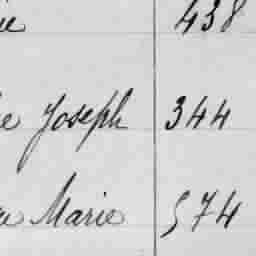 438
Joseph 344
Marie 574